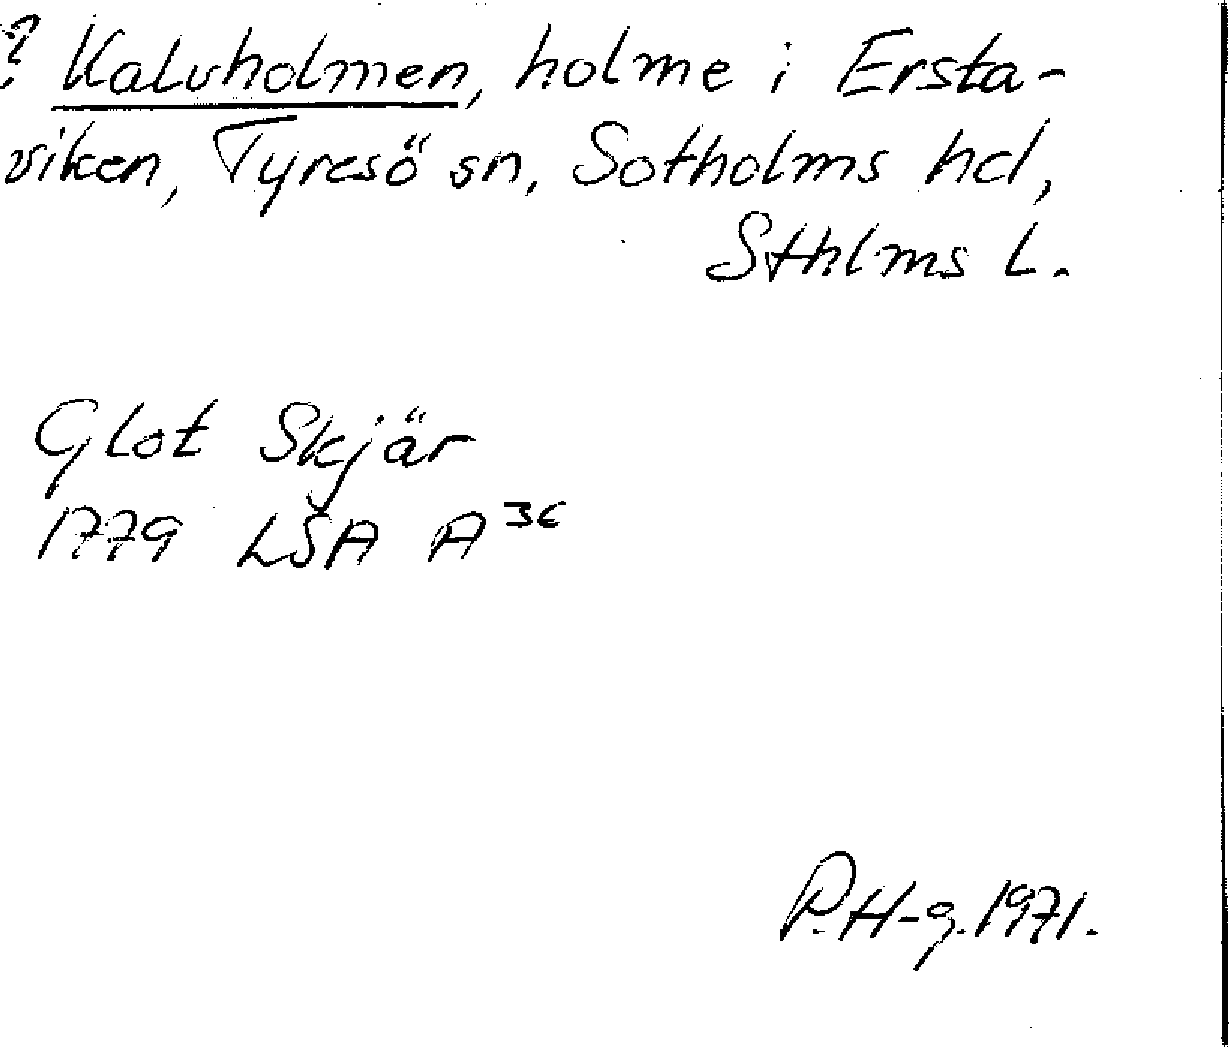 ? Kalvholmen, holme i Ersta-
viken, Tyresö sn, Sotholms hd,
Sthlms L.
Glot Skjär
1779 LSA A 36
P.H-g.1971.